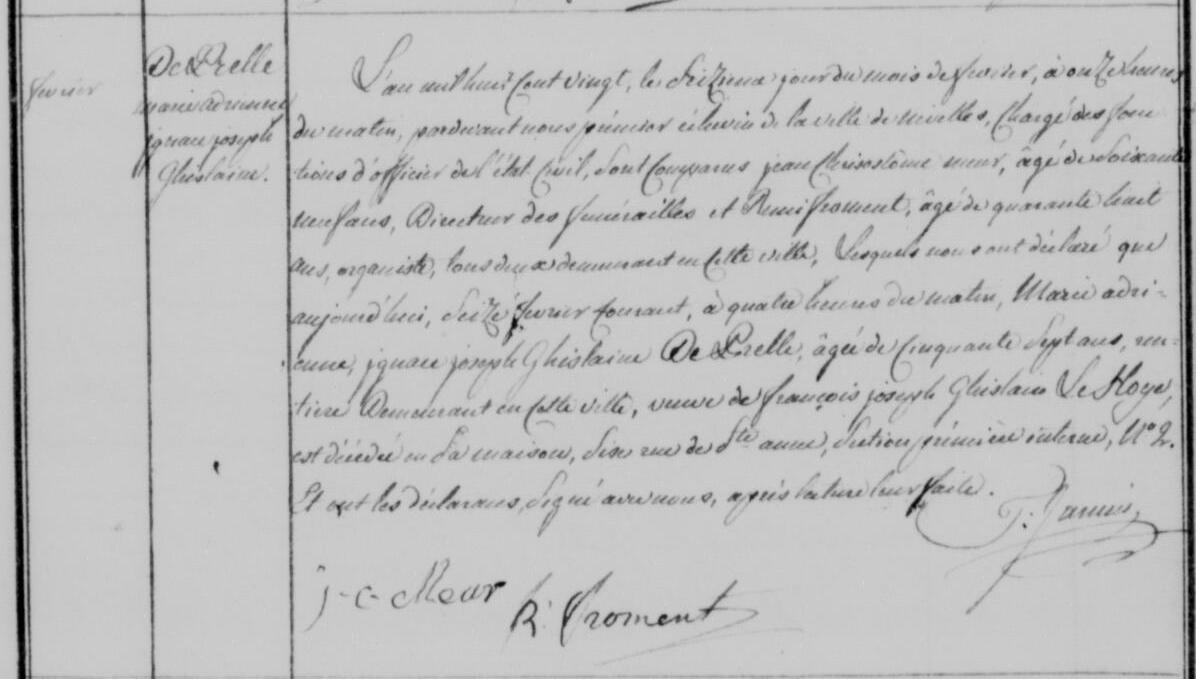 fevrier
De Prelle
marie adrienne
ignace joseph
Ghislaine.
L'an mil huit Cent vingt, le Seizieme jour du mois de fevrier, à onze heures
du matin, pardevant nous prémier échevin de la ville de nivelles, Chargé des fonc
tions d'officier de l'état Civil, Sont Comparus jean Chrisostôme meur, âgé de Soixante
neuf ans, Directeur des funérailles et Remi froment, âgé de quarante huit
ans, organiste, tous deux demeurant en Cette ville, Lesquels nous ont déclaré que
aujourd'hui, Seize fevrier Courant, à quatre heures du matin, Marie adri-
enne, ignace joseph Ghislaine De Prelle, âgée de Cinquante Sept ans, ren-
tiere Demeurant en Cette ville, veuve de françois joseph Ghislain Le Hoye,
est décédée en Sa maison, Sise rue de Ste anne, Section prémière interne, No 2.
Et ont les déclarans, Signé avec nous, après lecture leur faite.
j-c-Meur
R. froment